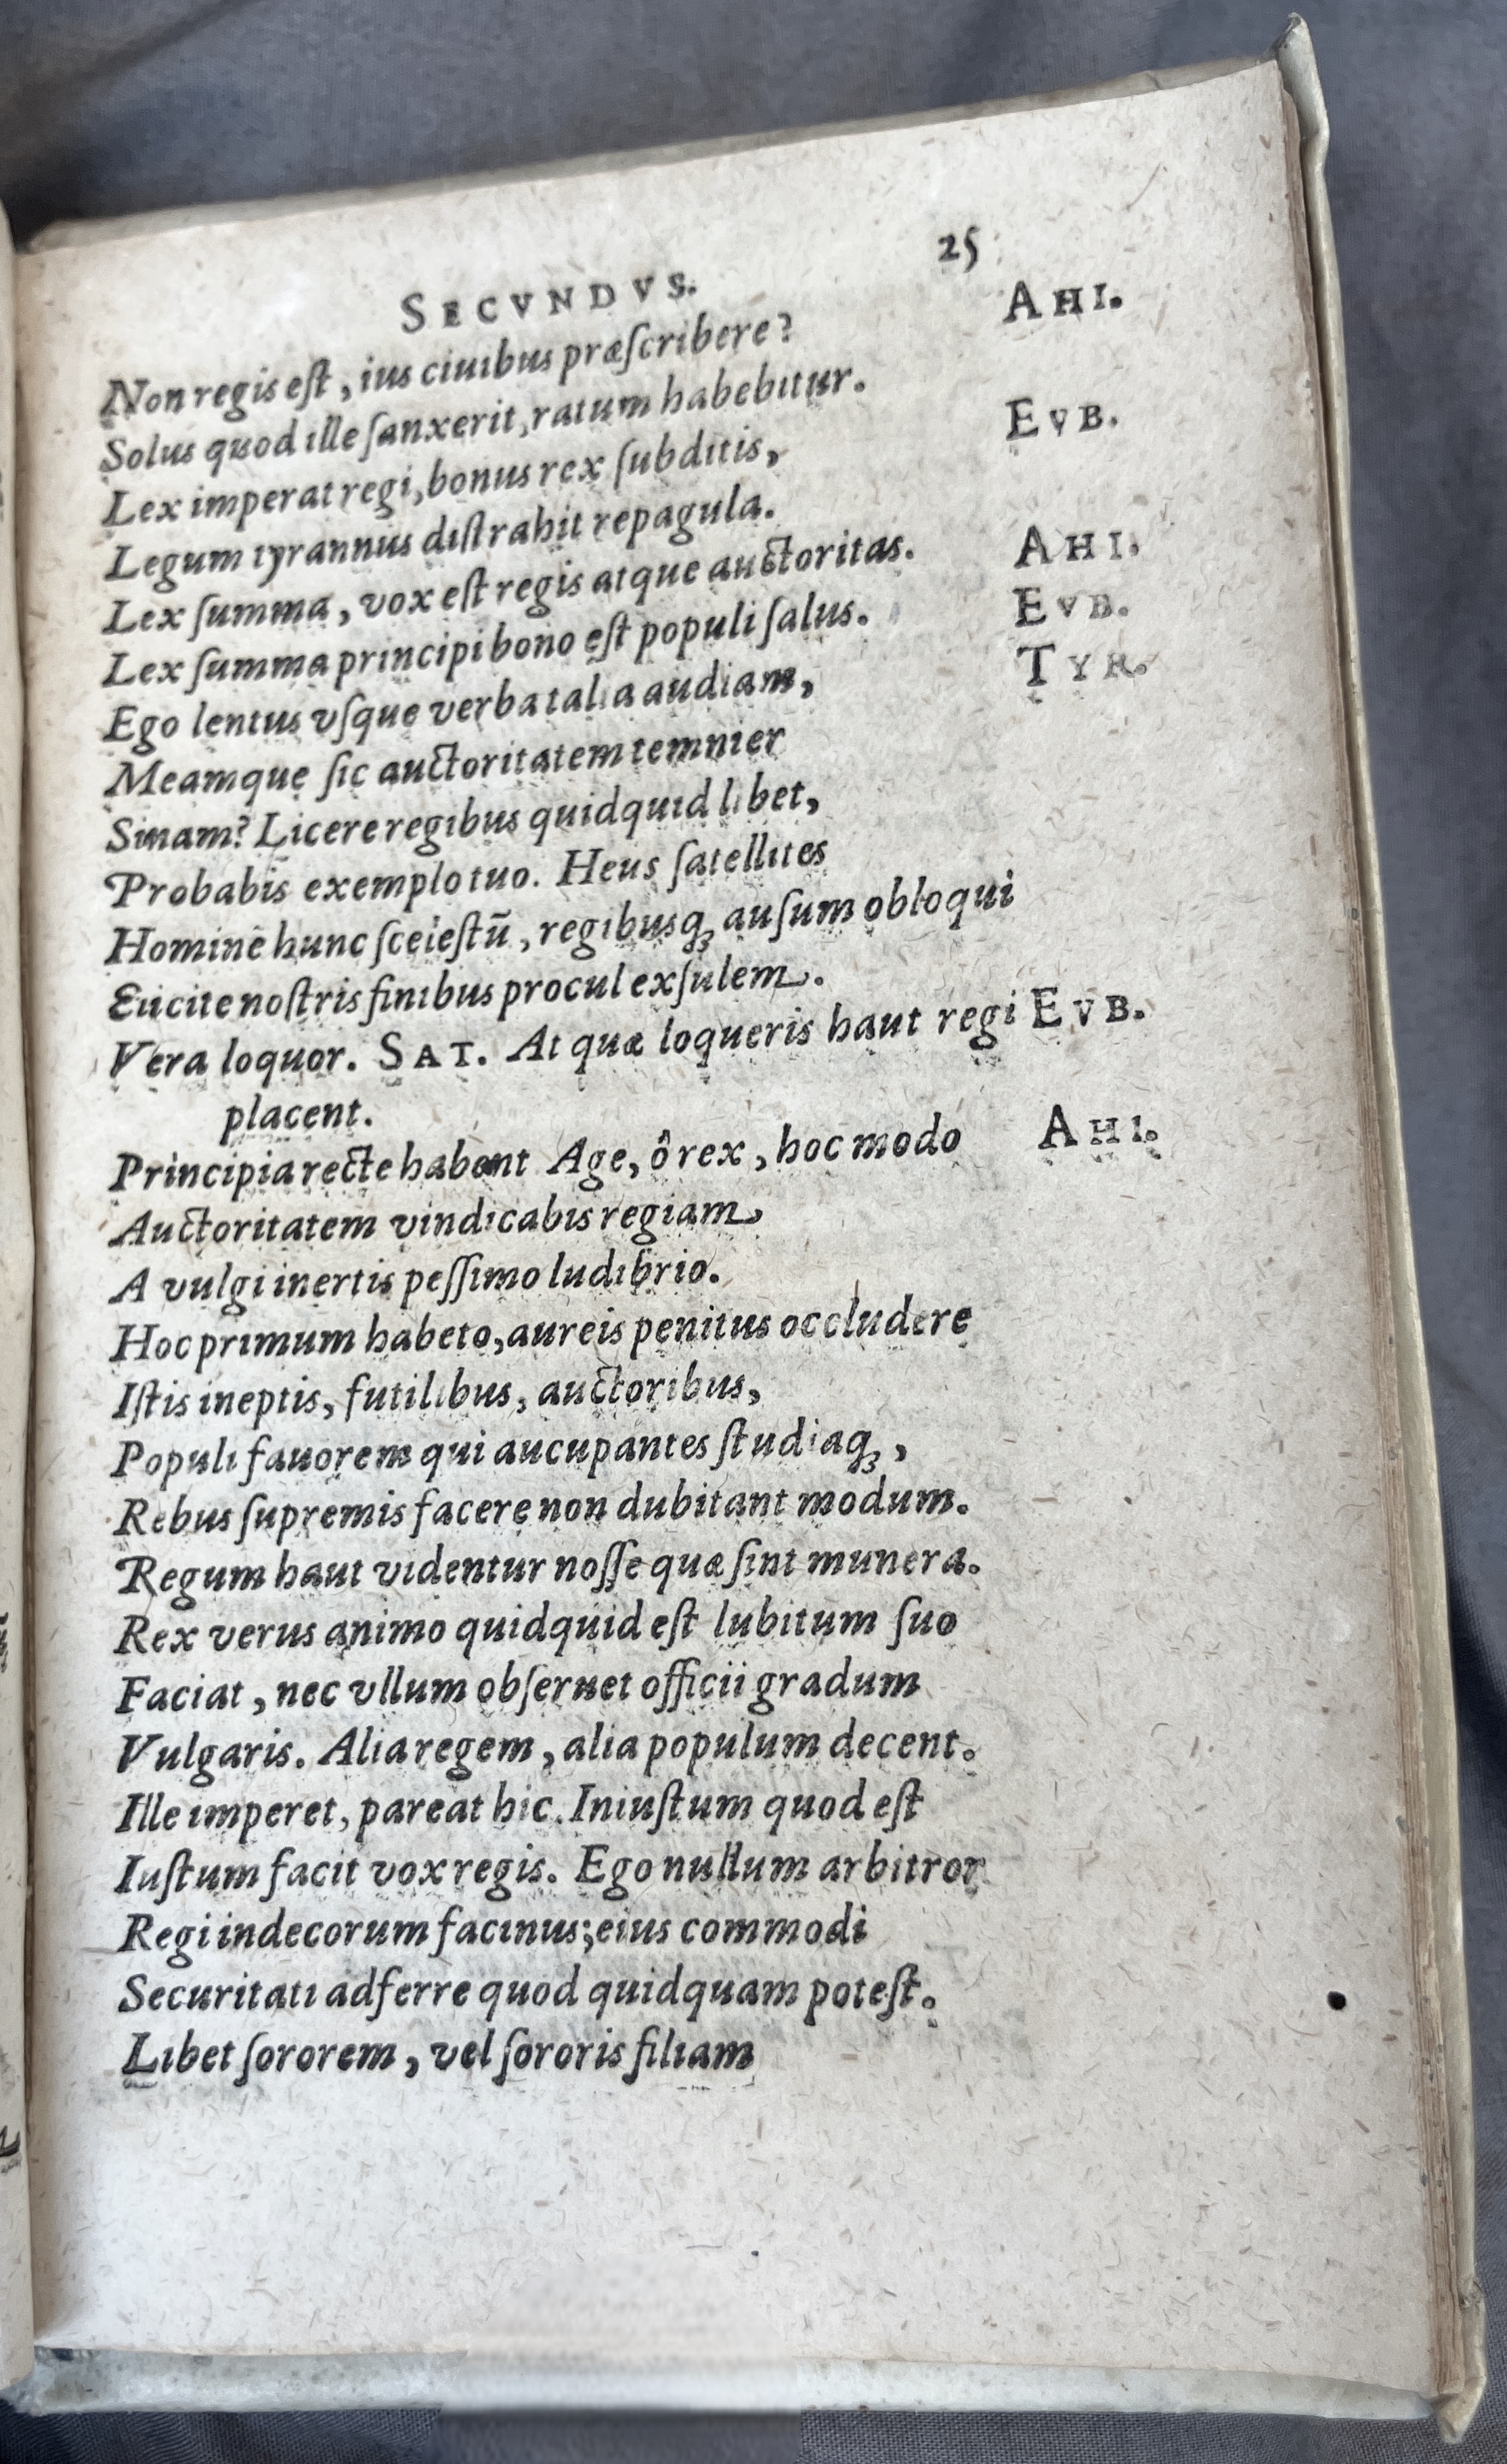 SECVNDVS. 25
Non regis est, ius ciuibus præscribere? AHI.
Solus quod ille sanxerit, ratum habebitur.
Lex imperat regi, bonus rex subditis, EVB.
Legum tyrannus distrahit repagula.
Lex summa, vox est regis atque auctoritas. AHI.
Lex summa principi bono est populi salus. EVB.
Ego lentus vsque verba talia audiam, TYR.
Meamque sic auctoritatem temnier
Sinam? Licere regibus quidquid libet,
Probabis exemplo tuo. Heus satellites
Hominē hunc scelestū, regibusq́ꝫ ausum obloqui
Eiicite nostris finibus procul exsulem.
Vera loquor. SAT. At quæ loqueris haut regi EVB.
placent.
Principia recte habent Age, ô rex, hoc modo AHI.
Auctoritatem vindicabis regiam
A vulgi inertis pessimo ludibrio.
Hoc primum habeto, aureis penitus occludere
Istis ineptis, futilibus, auctoribus,
Populi fauorem qui aucupantes studiaqꝫ,
Rebus supremis facere non dubitant modum.
Regum haut videntur nosse quæ sint munera.
Rex verus animo quidquid est lubitum suo
Faciat, nec vllum obseruet officii gradum
Vulgaris. Alia regem, alia populum decent.
Ille imperet, pareat hic. Iniustum quod est
Iustum facit vox regis. Ego nullum arbitror
Regi indecorum facinus; eius commodi
Securitati adferre quod quidquam potest.
Libet sororem, vel sororis filiam